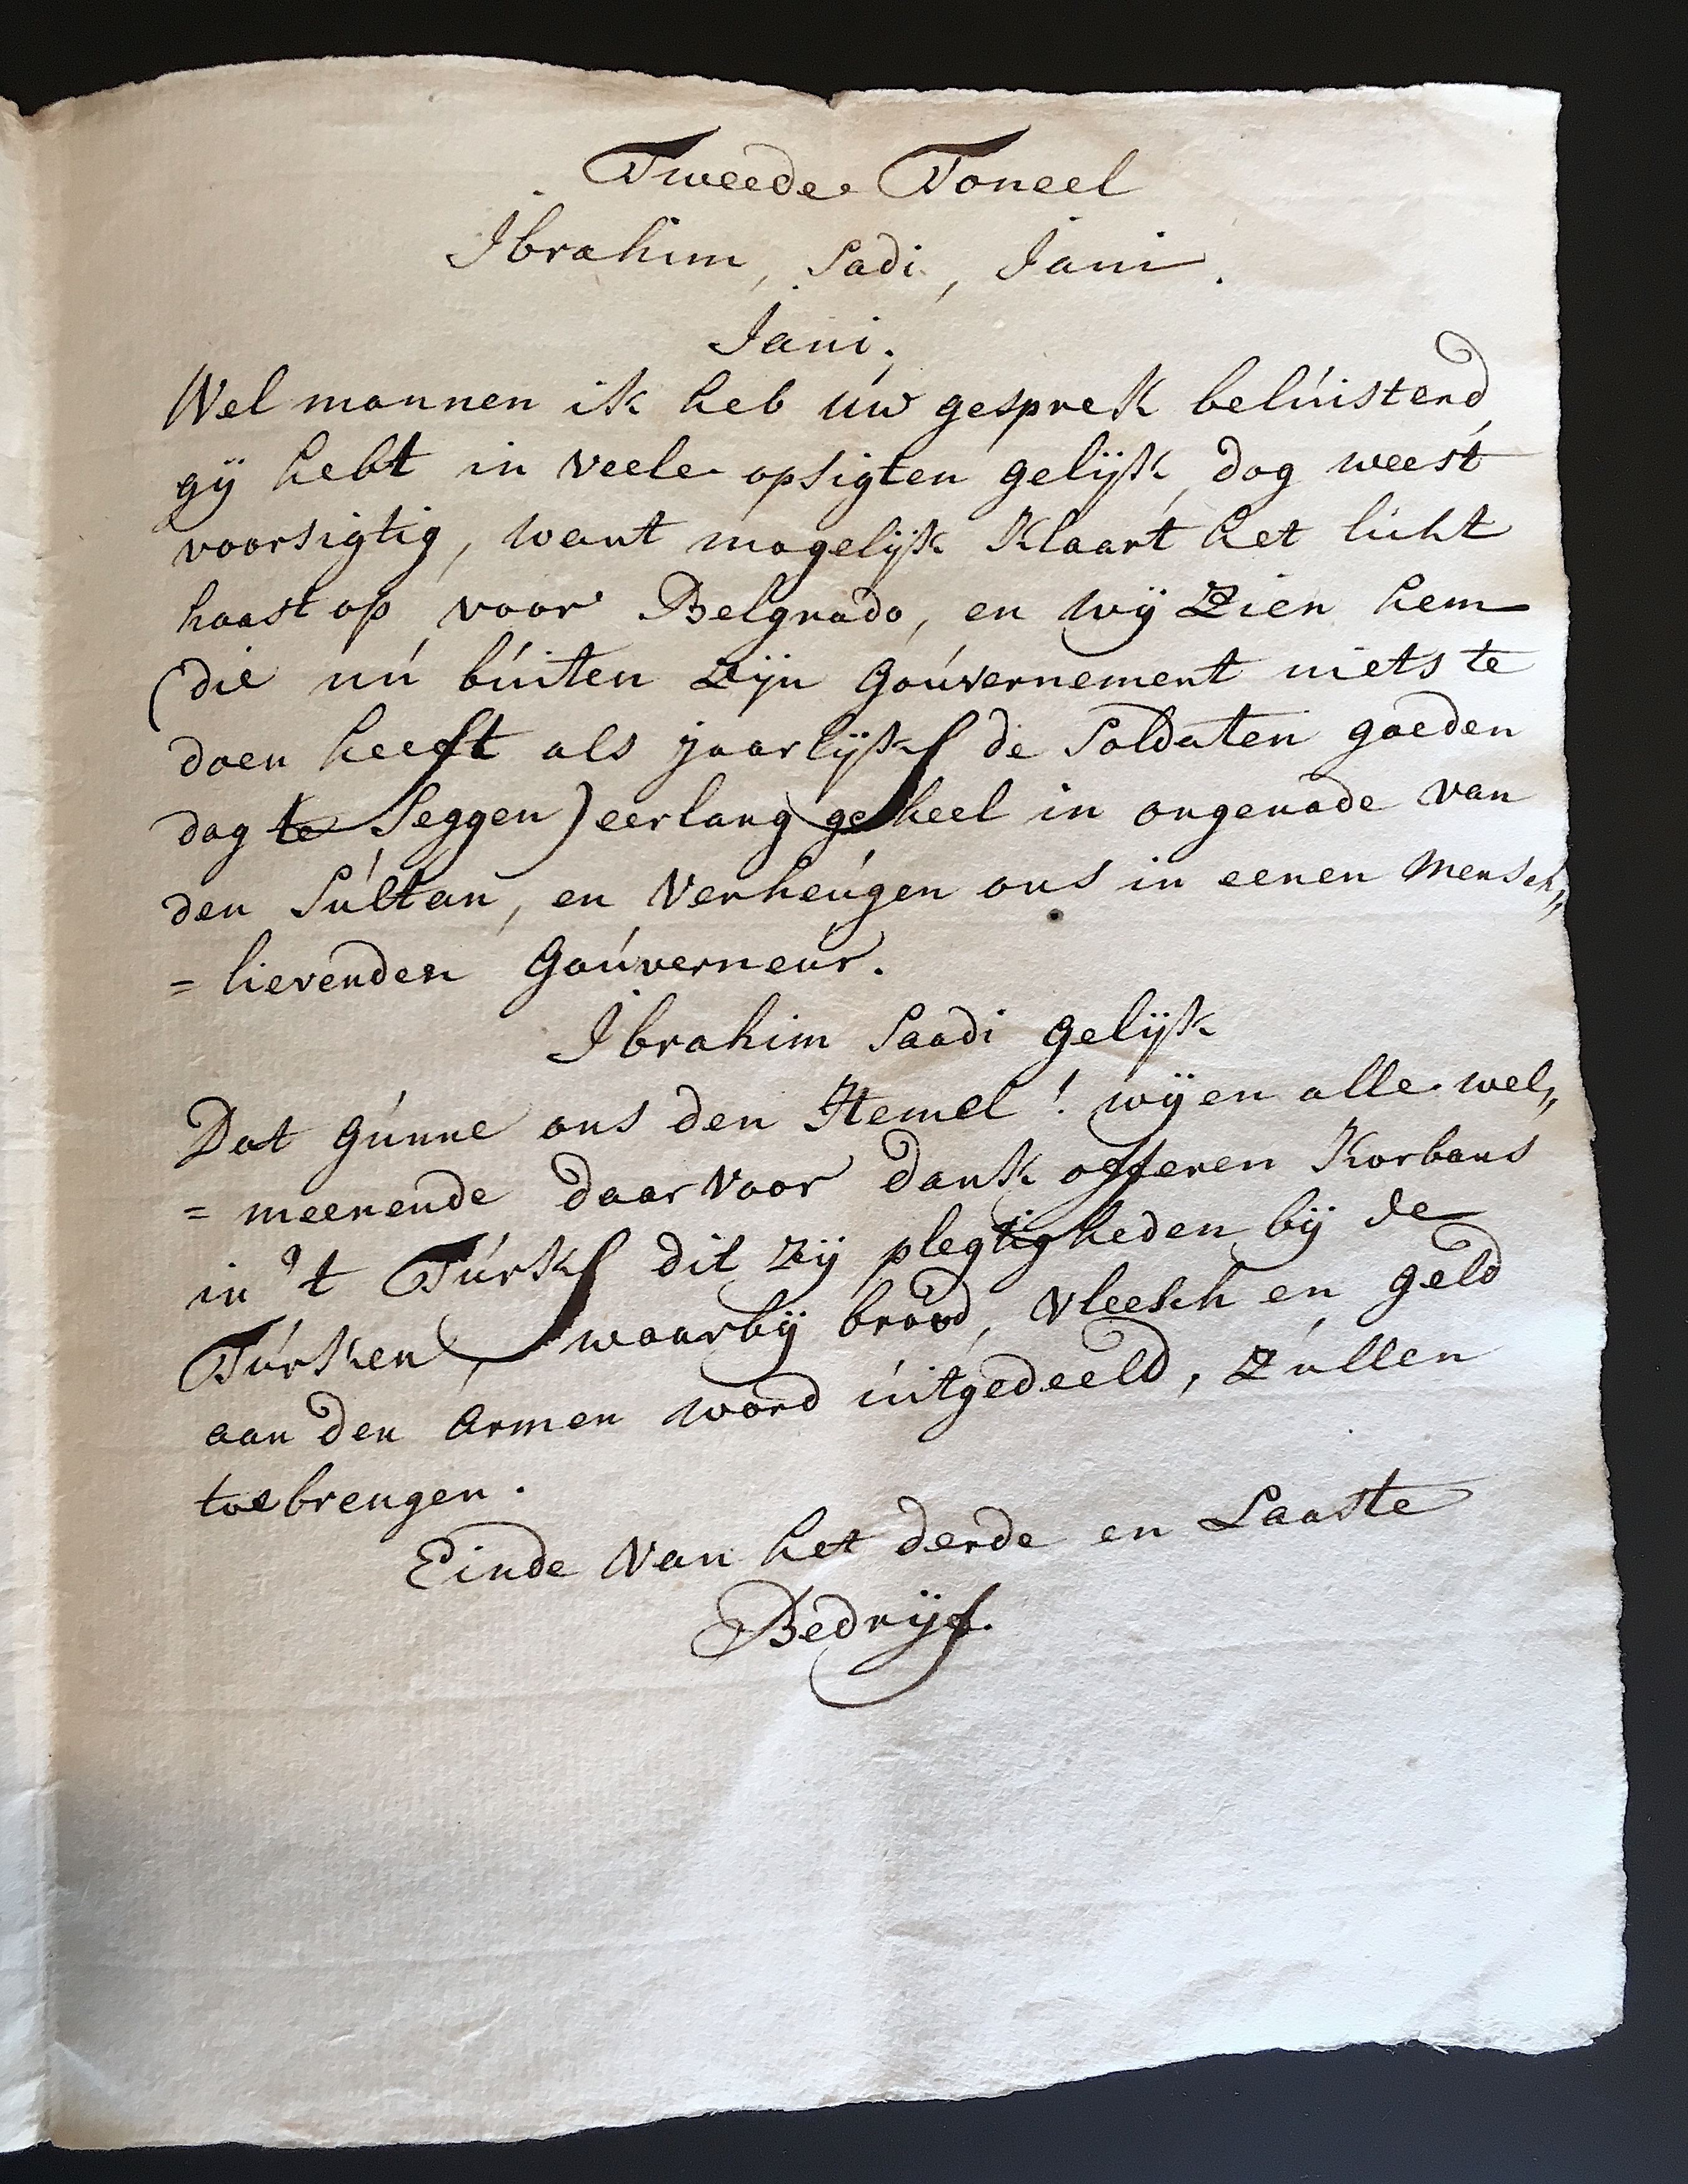 Tweede Toneel
Ibrahim, Sadi, Jani.
Jani.
Wel mannen ik heb uw gesprek beluisterd,
gij hebt in veele opsigten gelijk, dog weest
voorsigtig, want mogelijk klaart het licht
haast op voor Belgrado, en wij zien hem
(die nu buiten zijn Gouvernement niets te
doen heeft als jaarlijks de Soldaten goeden
dag te Seggen) eerlang geheel in ongenade van
den Sultan, en verheugen ons in eenen mensch„
= lievenden Gouverneur.
Ibrahim Saadi gelijk
Dat gunne ons den Hemel! wij en alle wel„
= meenende daar voor dank offeren Korbans
in 't Turks dit zij plegtigheden bij de
Turken, waarbij brood, vleesch en geld
aan den armen word uitgedeeld, zullen
toebrengen.
Einde van het derde en Laaste
Bedrijf.